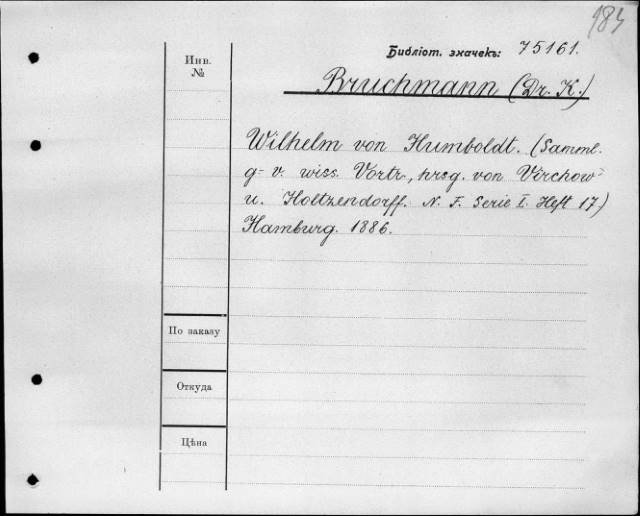 984
Библіот. значекъ: 75161.
Инв.
№
Bruchmann (Dr. K.)
Wilhelm von Humboldt. (Samml.
g- v. wiss. Vortr., hrsg. von Virchow
u. Holtzendorff. N. F. Serie I. Heft 17.)
Hamburg. 1886.
По заказу
Откуда
Цѣна